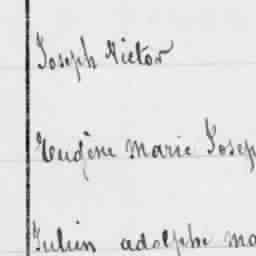 Joseph Victor
Eugène Marie Josep
Julien adolphe ma